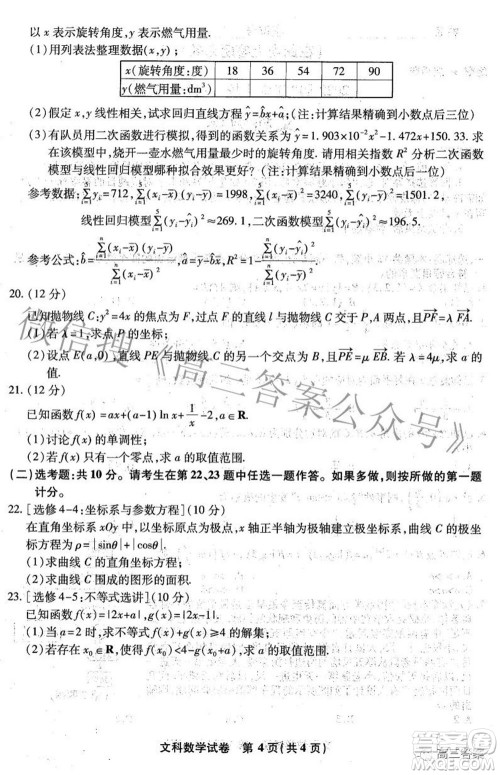 以 x 表示旋转角度,y 表示燃气用量.
(1)用列表法整理数据(x,y);
x(旋转角度:度) 18 36 54 72 90
y(燃气用量:dm³)
(2)假定 x,y 线性相关,试求回归直线方程 ŷ=b̂x+â;(注:计算结果精确到小数点后三位)
(3)有队员用二次函数进行模拟,得到的函数关系为 ŷ=1.903×10⁻²x²-1.472x+150.33.求
在该模型中,烧开一壶水燃气用量最少时的旋转角度.请用相关指数 R² 分析二次函数
模型与线性回归模型哪种拟合效果更好?(注:计算结果精确到小数点后一位)
参考数据:∑ᵢ₌₁⁵yᵢ=712,∑ᵢ₌₁⁵(xᵢ-x̄)(yᵢ-ȳ)=1998,∑ᵢ₌₁⁵(xᵢ-x̄)²=3240,∑ᵢ₌₁⁵(yᵢ-ȳ)²=1501.2,
线性回归模型∑ᵢ₌₁⁵(yᵢ-ŷᵢ)²≈269.1,二次函数模型∑ᵢ₌₁⁵(yᵢ-ŷᵢ)²≈196.5.
参考公式:b̂=∑ᵢ₌₁ⁿ(xᵢ-x̄)(yᵢ-ȳ)/∑ᵢ₌₁ⁿ(xᵢ-x̄)²,â=ȳ-b̂x̄,R²=1-∑ᵢ₌₁ⁿ(yᵢ-ŷᵢ)²/∑ᵢ₌₁ⁿ(yᵢ-ȳ)².
20.(12 分)
已知抛物线 C:y²=4x 的焦点为 F,直线 l 与抛物线 C 交于 P,A 两点,且PF=λFA.
(1)若 λ=1,求点 P 的坐标;
(2)设点 E(a,0),直线 PE 与抛物线 C 的另一个交点为 B,且PE=μEB.若 λ=4μ,求 a 的
值.
21.(12 分)
已知函数 f(x)=ax+(a-1)ln x+1/x-2,a∈R.
(1)讨论 f(x)的单调性;
(2)若 f(x)只有一个零点,求 a 的取值范围.
(二)选考题:共 10 分。请考生在第 22、23 题中任选一题作答。如果多做,则按所做的第一题
计分。
22.[选修 4-4:坐标系与参数方程](10 分)
在直角坐标系 xOy 中,以坐标原点为极点,x 轴正半轴为极轴建立极坐标系,曲线 C 的极坐
标方程为 ρ=|sinθ|+|cosθ|.
(1)求曲线 C 的直角坐标方程;
(2)求曲线 C 围成的图形的面积.
23.[选修 4-5:不等式选讲](10 分)
已知函数 f(x)=|2x+a|,g(x)=|2x-1|.
(1)当 a=2 时,求不等式 f(x)+g(x)≤4 的解集;
(2)若存在 x₀∈R,使得 f(x₀)<4-g(x₀+a),求 a 的取值范围.
文科数学试卷 第 4 页(共 4 页)
微信搜《高三答案公众号》
高三答案